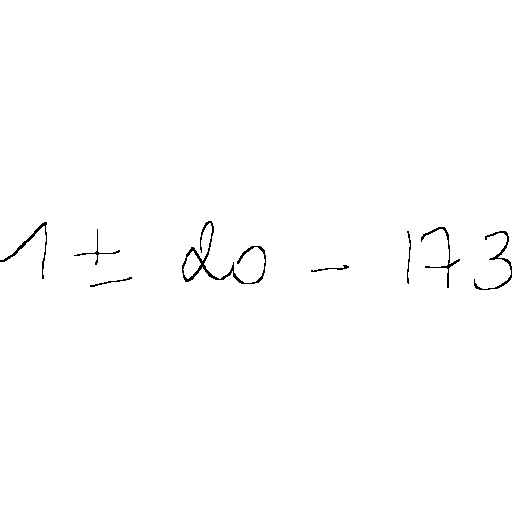 1 ± 20 - 173